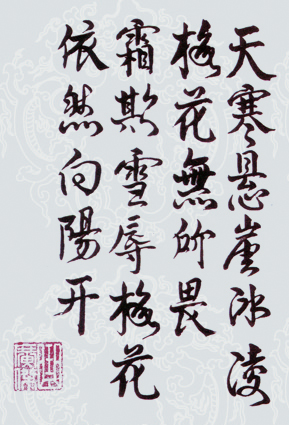 天寒懸崖冰凌
格花無所畏
霜欺雪辱格花
依然向陽开